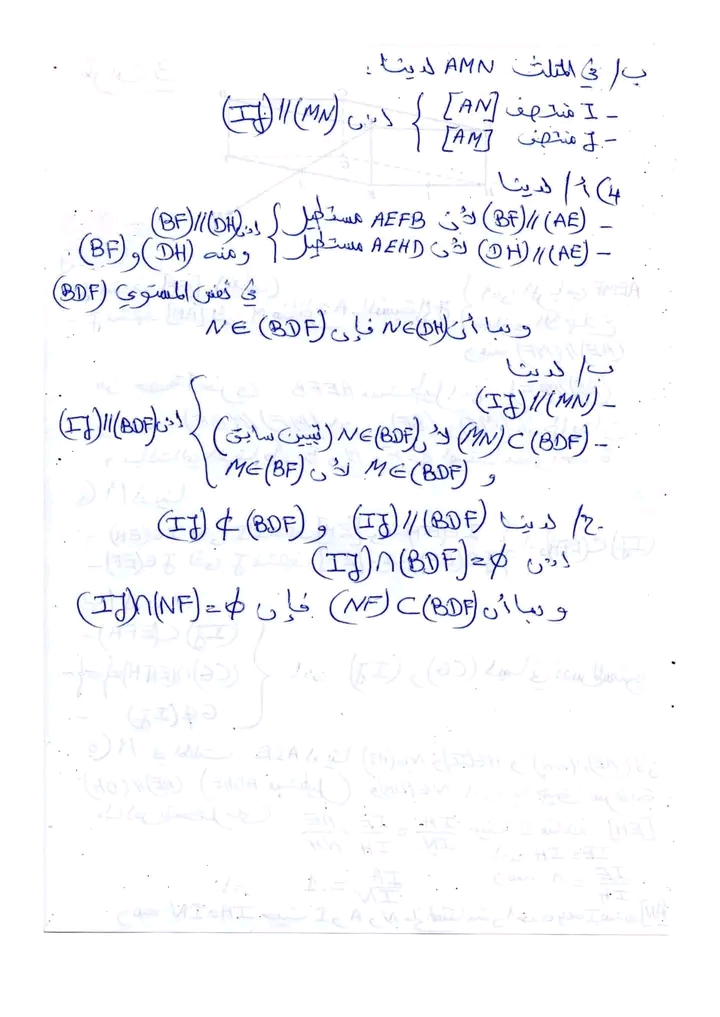 ب/ في المثلث AMN لدينا :
- I منتصف [AN]
- J منتصف [AM] } اذن (IJ)//(MN)
4) أ/ لدينا
- (BF)//(AE) لأن AEFB مستطيل } اذن (BF)//(DH)
- (DH)//(AE) لأن AEHD مستطيل } ومنه (DH) و (BF)
في نفس المستوى (BDF)
وبما أن N∈(DH) فإن N∈(BDF)
ب/ لدينا
- (IJ)//(MN)
- (MN)⊂(BDF) لأن N∈(BDF) (تبيين سابق) } اذن (IJ)//(BDF)
و M∈(BDF) لأن M∈(BF)
ج/ لدينا (IJ)//(BDF) و (IJ)⊄(BDF)
اذن (IJ)∩(BDF)=∅
وبما أن (NF)⊂(BDF) فإن (IJ)∩(NF)=∅